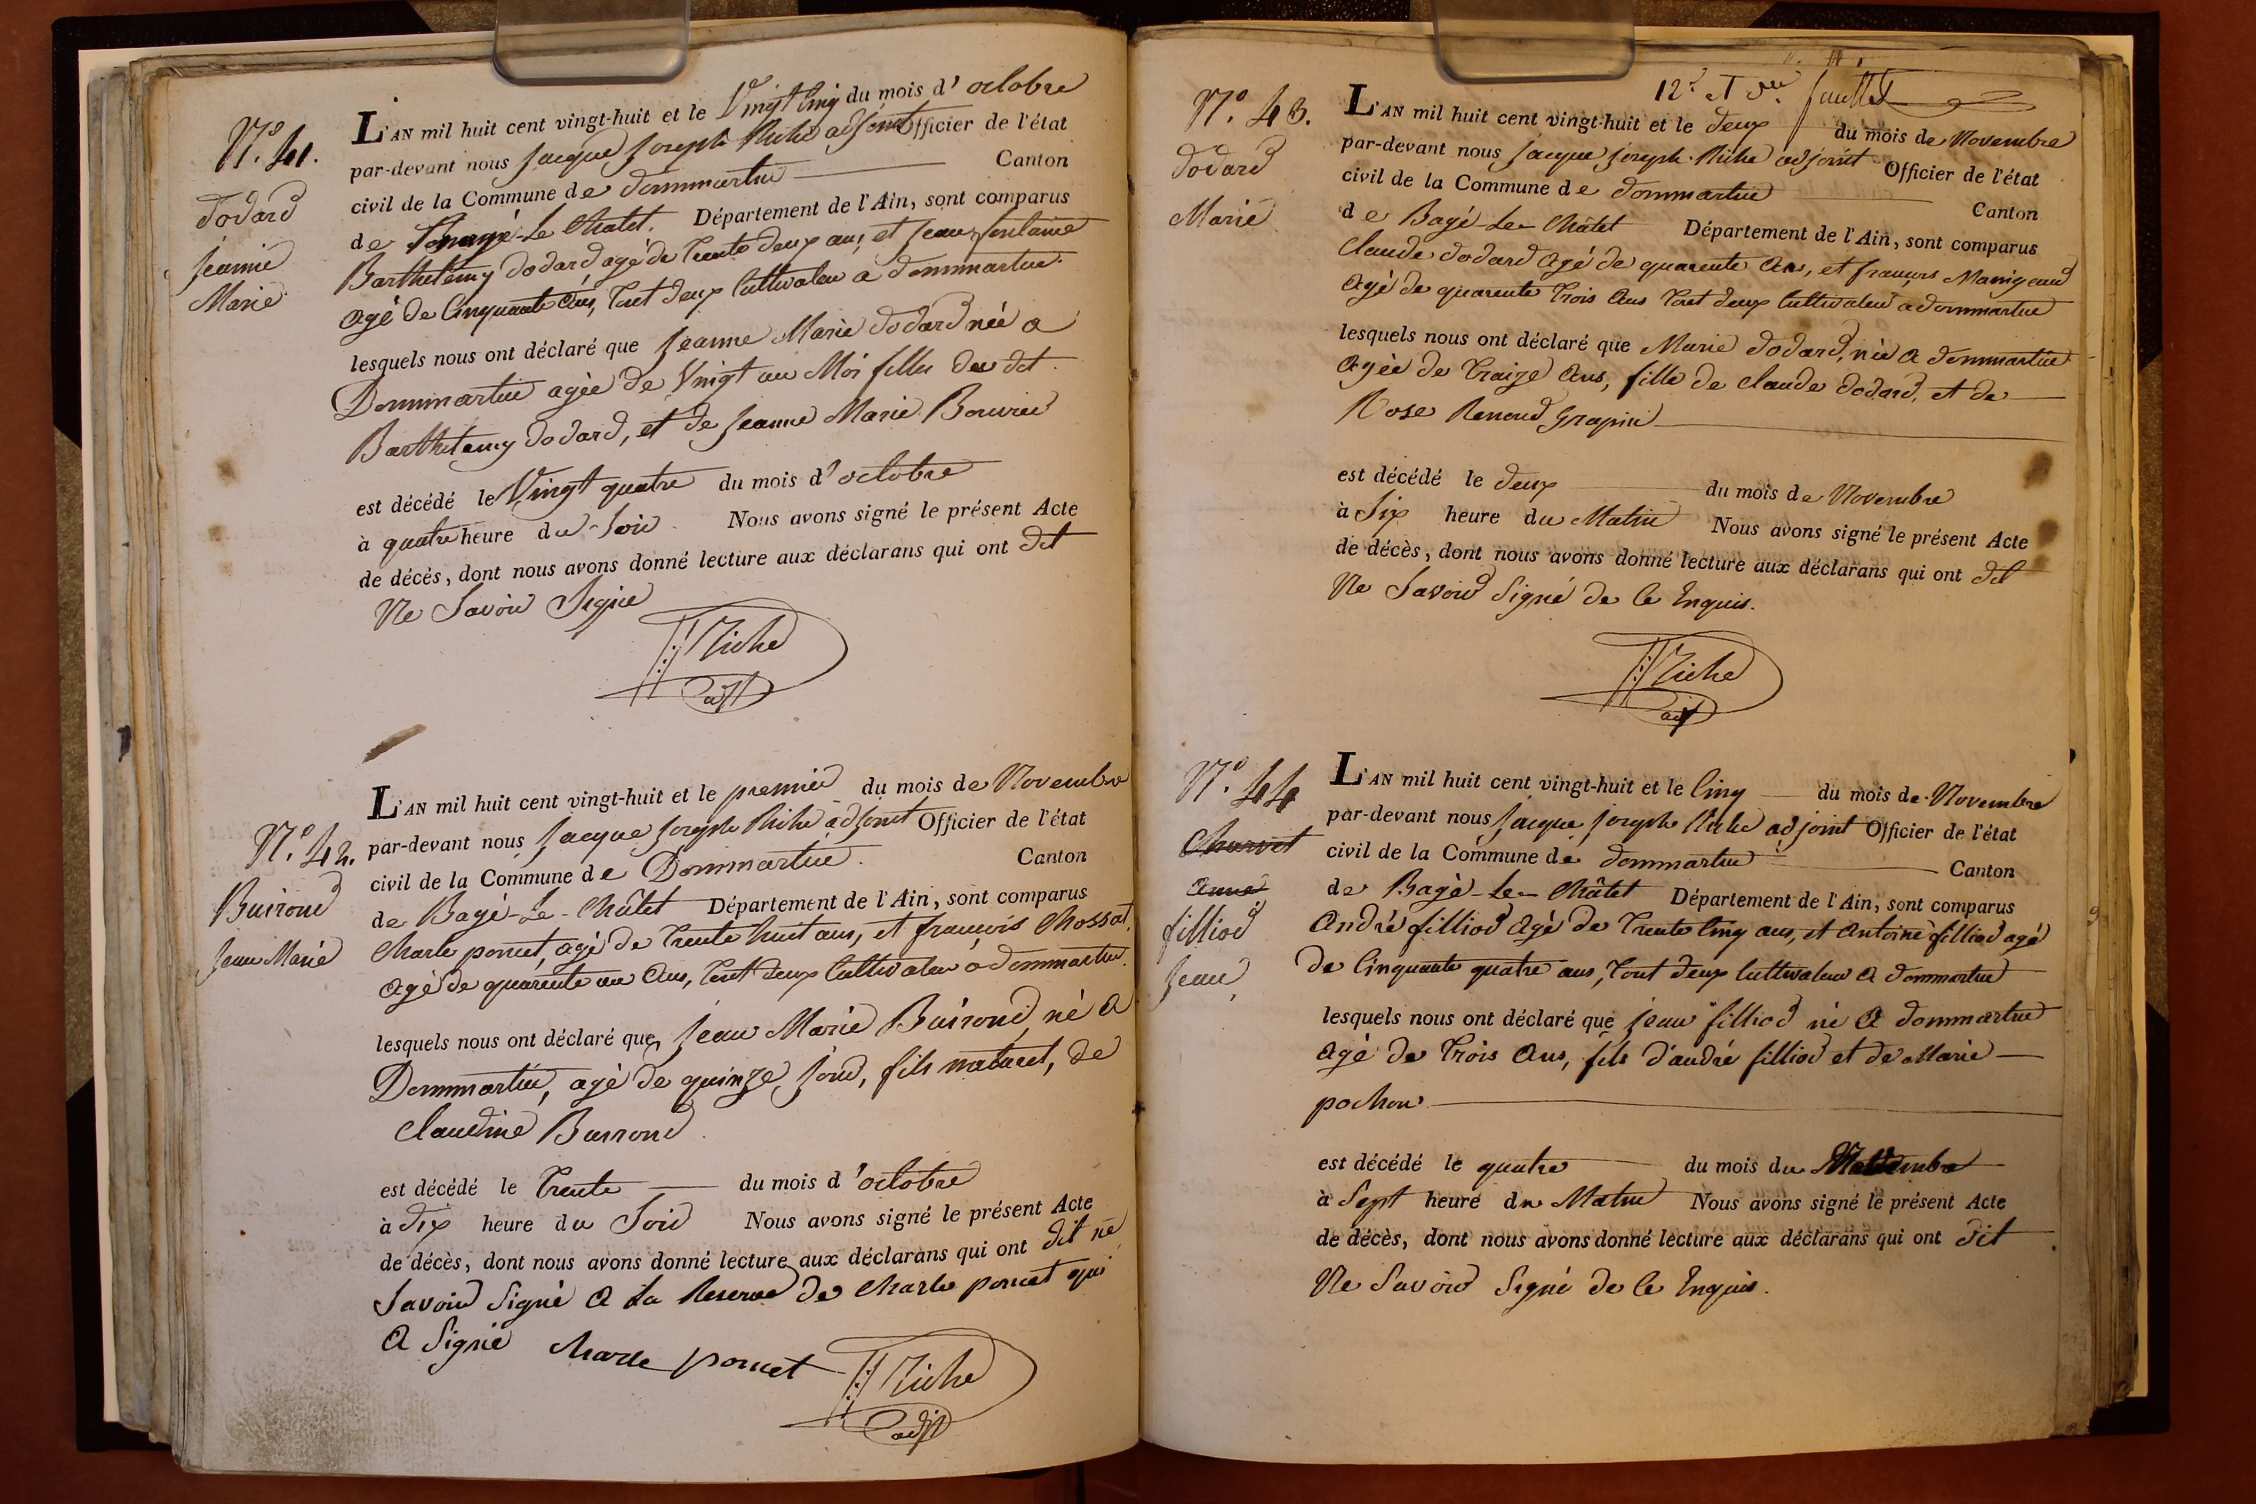 N.° 41.
Dodard
Jeanne
Marie
L'AN mil huit cent vingt-huit et le Vingt Cinq du mois d'octobre
par-devant nous Jacque Joseph Riche adjoint Officier de l'état
civil de la Commune de Dommartin Canton
de Bagé-Le Chatel. Département de l'Ain, sont comparus
Barthelemy Dodard agé de Trente deux ans, et Jean fontaine
agé de Cinquante Ans, Tout deux Cultivateu a dommartin.
lesquels nous ont déclaré que Jeanne Marie Dodard née a
Dommartin agée de Vingt un Moi fille du dit
Barthélemy Dodard, et de Jeanne Marie Bouvier
est décédé le Vingt quatre du mois d'octobre
à quatre heure du Soir Nous avons signé le présent Acte
de décès, dont nous avons donné lecture aux déclarans qui ont dit
Ne Savoir Signé
Riche
adjt
N.° 42.
Buirond
Jean Marie
L'AN mil huit cent vingt-huit et le premier du mois de Novembre
par-devant nous Jacque Joseph Riche adjoint Officier de l'état
civil de la Commune de Dommartin. Canton
de Bagé-Le-Châtel Département de l'Ain, sont comparus
Charle poncet, agé de Trente huit ans, et françois Chossat,
agé de quarente un Ans, Tout deux Cultivateu a dommartin.
lesquels nous ont déclaré que Jean Marie Buirond, né a
Dommartin, agé de quinze Jour, fils naturel, de
Claudine Buirond
est décédé le Trente du mois d'octobre
à dix heure du Soir Nous avons signé le présent Acte
de décès, dont nous avons donné lecture aux déclarans qui ont dit ne
Savoir Signé a La Reserve de Charle poncet qui
a Signé Charle poncet
Riche
adjt
12.e et
N.° 43.
Dodard
Marie
L'AN mil huit cent vingt-huit et le deux du mois de Novembre
par-devant nous Jacque Joseph Riche adjoint Officier de l'état
civil de la Commune de Dommartin Canton
de Bagé-Le-Châtel Département de l'Ain, sont comparus
Claude Dodard agé de quarente Ans, et françois Manigand
agé de quarente Trois Ans Tout deux Cultivateu a dommartin
lesquels nous ont déclaré que Marie Dodard, née a dommartin
agée de Traize Ans, fille de Claude Dodard, et de
Rose Renoud Grapin
est décédé le deux du mois de Novembre
à Six heure du Matin Nous avons signé le présent Acte
de décès, dont nous avons donné lecture aux déclarans qui ont dit
Ne Savoir Signé de Ce Enquis.
Riche
adjt
N.° 44
Charvet
Anne
filliod
Jean,
L'AN mil huit cent vingt-huit et le Cinq du mois de Novembre
par-devant nous Jacque Joseph Riche adjoint Officier de l'état
civil de la Commune de Dommartin Canton
de Bagé-Le-Châtel Département de l'Ain, sont comparus
André filliod Agé de Trente Cinq ans, et Antoine filliod agé
de Cinquante quatre ans, Tout deux Cultivateu a dommartin
lesquels nous ont déclaré que Jean filliod né a dommartin
agé de Trois Ans, fils d'andré filliod et de Marie
pochon
est décédé le quatre du mois du Novembre
à Sept heure du Matin Nous avons signé le présent Acte
de décès, dont nous avons donné lecture aux déclarans qui ont dit
Ne Savoir Signé de Ce Enquis.